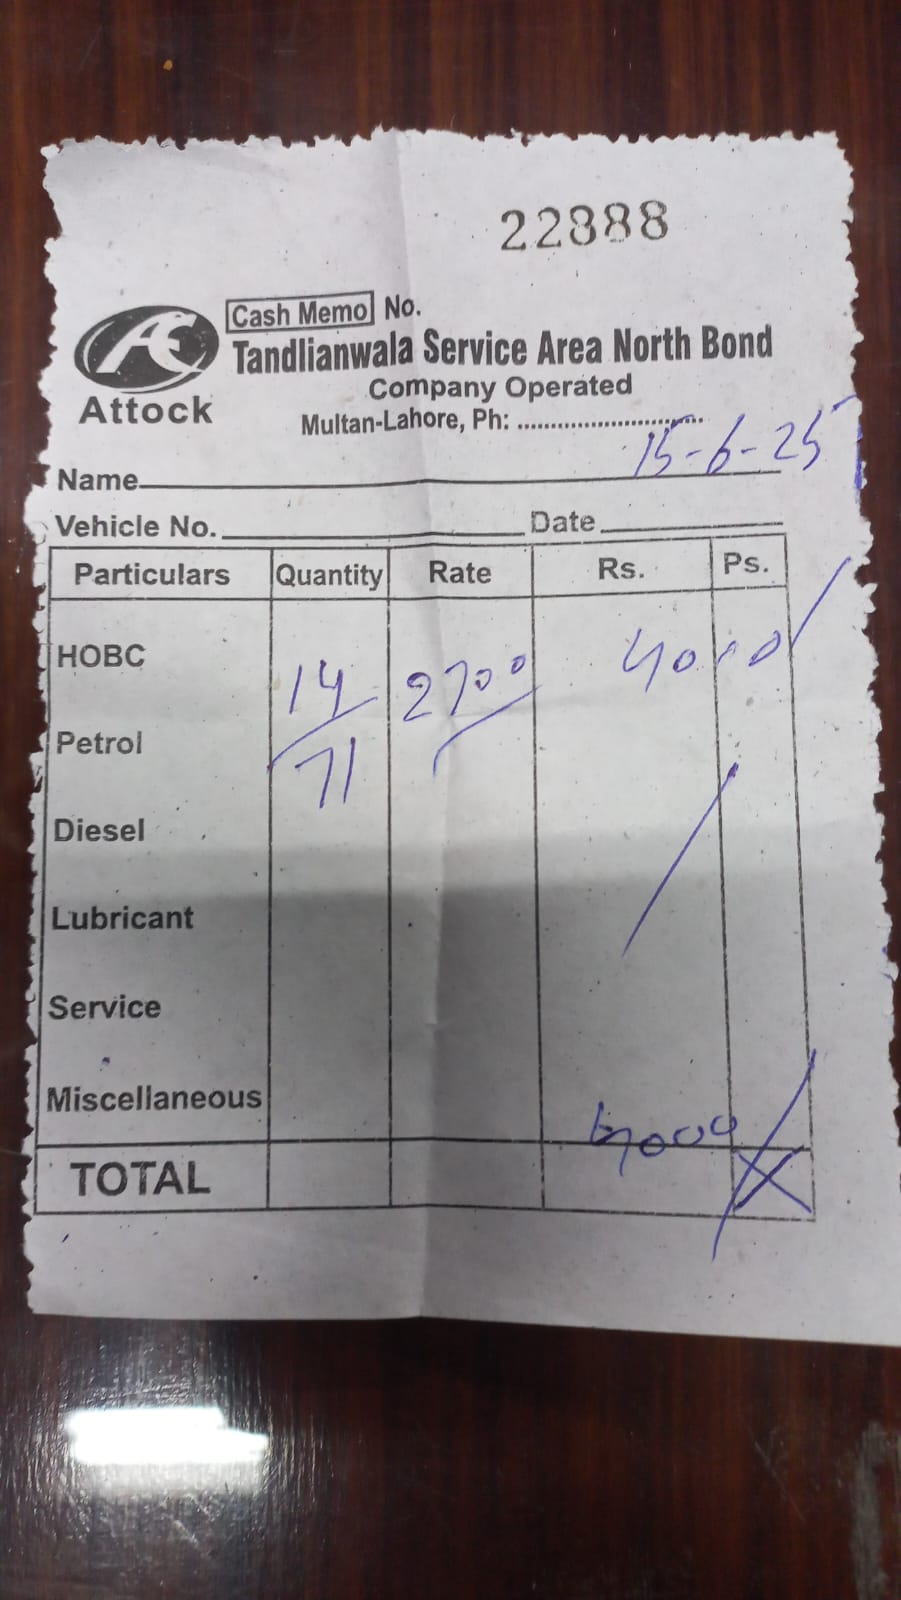 22888
Cash Memo No.
Tandlianwala Service Area North Bond
Company Operated
Attock
Multan-Lahore, Ph: ............................
15-6-25
Name
Vehicle No. Date
Particulars Quantity Rate Rs. Ps.
HOBC
14 2700 4000
Petrol
71
Diesel
Lubricant
Service
Miscellaneous
4000
TOTAL